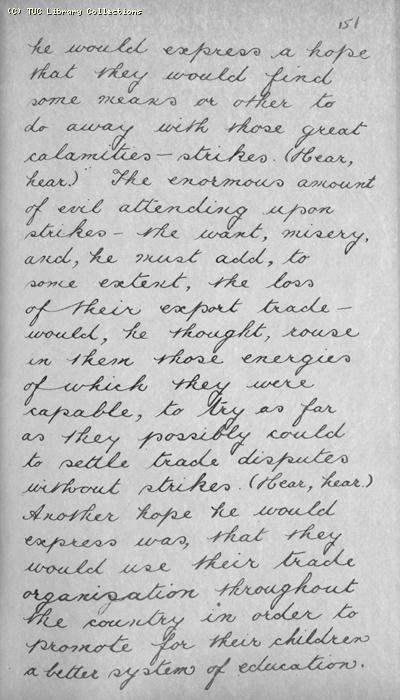 (C) TUC Library Collections
151
he would express a hope
that they would find
some means or other to
do away with those great
calamities – strikes. (Hear,
hear.) The enormous amount
of evil attending upon
strikes – the want, misery,
and, he must add, to
some extent, the loss
of their export trade –
would, he thought, rouse
in them those energies
of which they were
capable, to try as far
as they possibly could
to settle trade disputes
without strikes. (Hear, hear.)
Another hope he would
express was, that they
would use their trade
organization throughout
the country in order to
promote for their children
a better system of education.